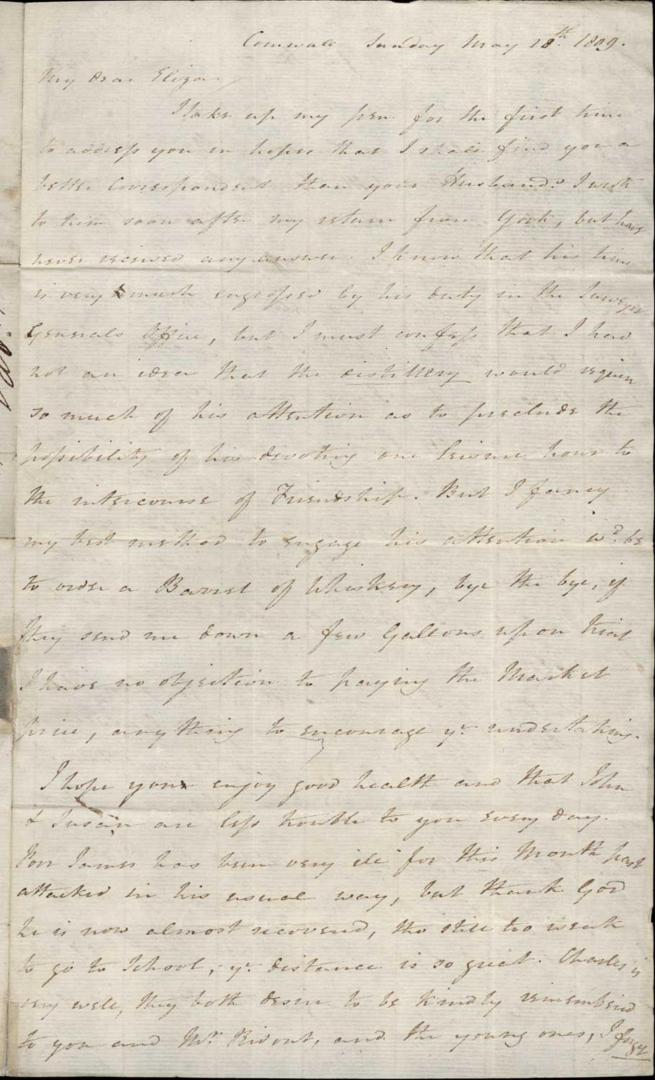 Cornwall Sunday May 18th. 1809.
My dear Eliza,
I take up my pen for the first time
to address you in hopes that I shall find you a
better Correspondent than your Husband. I wrote
to him soon after my return from York, but have
never received any answer. I know that his time
is very much engrossed by his duty in the Surveyor
Generals Office, but I must confess that I had
not an idea that the distillery would require
so much of his attention as to preclude the
possibility of his devoting one leisure hour to
the intercourse of Friendship. But I fancy
my best method to engage his attention wd. be
to order a Barrel of Whiskey, bye the bye, if
they send me down a few Gallons upon trial
I have no objection to paying the Market
price, any thing to encourage yr. undertaking.
I hope you enjoy good health and that John
& Susan are less trouble to you every day.
Poor James has been very ill for this Month past
attacked in his usual way, but thank God
he is now almost recovered, tho still too weak
to go to School, ye. distance is so great. Charles is
very well, they both desire to be kindly remembered
to you and Mr. Ridout, and the young ones, I